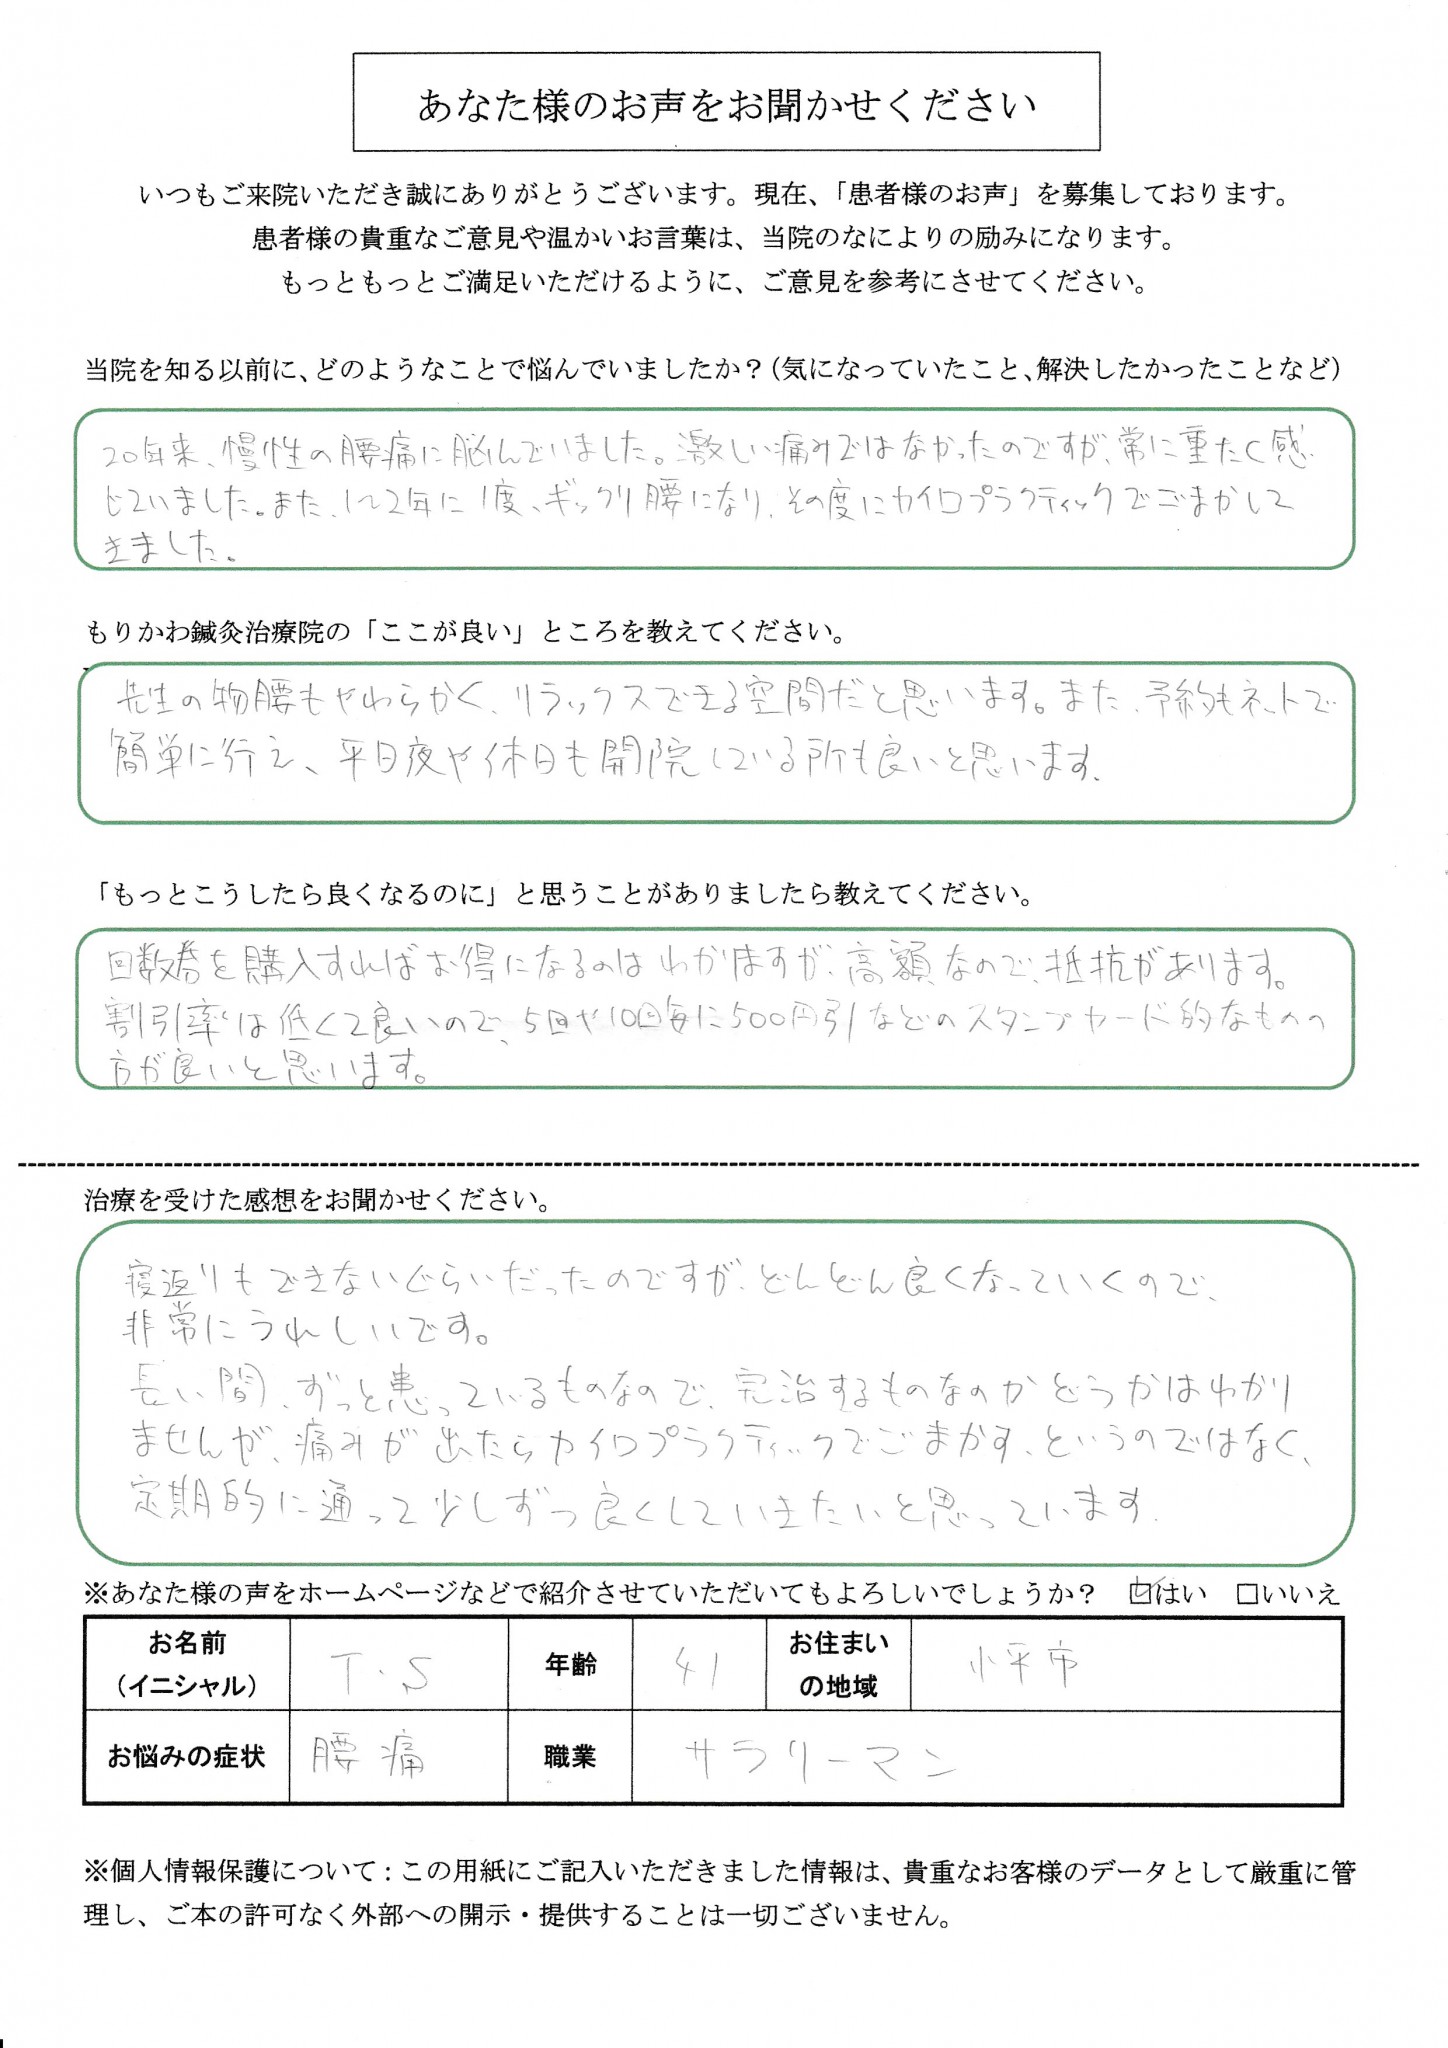 あなた様のお声をお聞かせください
いつもご来院いただき誠にありがとうございます。現在、「患者様のお声」を募集しております。
患者様の貴重なご意見や温かいお言葉は、当院のなによりの励みになります。
もっともっとご満足いただけるように、ご意見を参考にさせてください。
当院を知る以前に、どのようなことで悩んでいましたか？（気になっていたこと、解決したかったことなど）
20年来、慢性の腰痛に脳んでいました。激しい痛みではなかったのですが、常に重たく感
じていました。また、1〜2年に1度、ギックリ腰になり、その度にカイロプラクティックでごまかして
きました。
もりかわ鍼灸治療院の「ここが良い」ところを教えてください。
先生の物腰もやわらかく、リラックスできる空間だと思います。また、予約もネットで
簡単に行え、平日夜や休日も開院している所も良いと思います。
「もっとこうしたら良くなるのに」と思うことがありましたら教えてください。
回数券を購入すればお得になるのはわかりますが、高額なので、抵抗があります。
割引率は低くて良いので、5回や10回毎に500円引などのスタンプカード的なものの
方が良いと思います。
治療を受けた感想をお聞かせください。
寝返りもできないぐらいだったのですが、どんどん良くなっていくので、
非常にうれしいです。
長い間、ずっと患っているものなので、完治するものなのかどうかはわかり
ませんが、痛みが出たらカイロプラクティックでごまかす、というのではなく、
定期的に通って少しずつ良くしていきたいと思っています。
※あなた様の声をホームページなどで紹介させていただいてもよろしいでしょうか？ ☑はい □いいえ
お名前（イニシャル） T.S 年齢 41 お住まいの地域 小平市
お悩みの症状 腰痛 職業 サラリーマン
※個人情報保護について：この用紙にご記入いただきました情報は、貴重なお客様のデータとして厳重に管
理し、ご本の許可なく外部への開示・提供することは一切ございません。